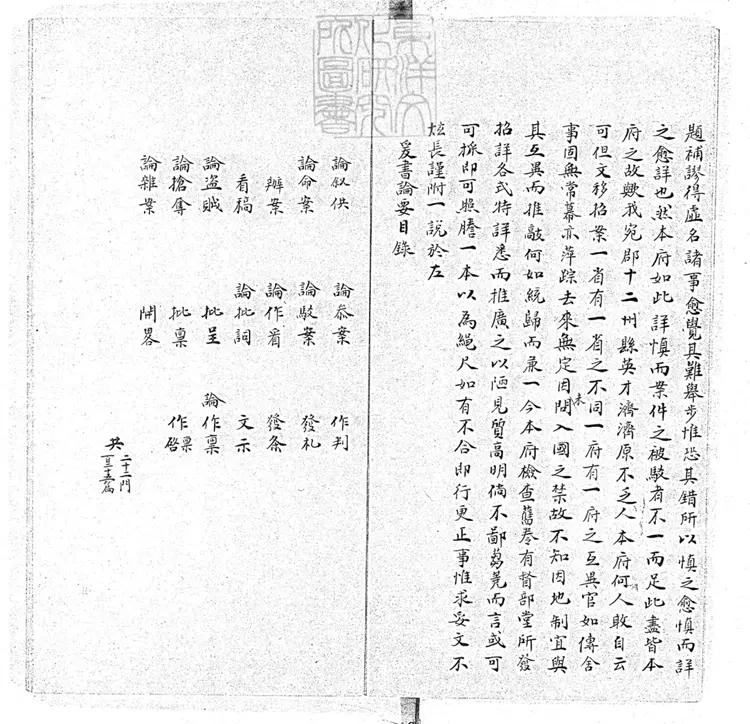 題補謬得虛名諸事愈覺其難舉步惟恐其錯所以慎之愈慎而詳
之愈詳也然本府如此詳慎而案件之被駁者不一而足此盡皆本
府之故歟我宛郡十二州縣英才濟濟原不乏人本府何人敢自云
可但文移招案一省有一省之不同一府有一府之互異官如傳舍
事固無常幕亦萍踪去來無定因未聞入國之禁故不知因地制宜與
其互異而推敲何如統歸而兼一今本府檢查舊卷有督部堂所發
招詳各式特詳悉而推廣之以陋見質高明倘不鄙芻蕘而言或可
可採即可照謄一本以為繩尺如有不合即行更正事惟求妥文不
炫長謹附一說於左
爰書論要目錄
論叙供 論叅案 作判
論命案 論駁案 發札
辦案 論作看 發条
看稿 論批詞 文示
論盜賊 批呈 論作禀
論搶奪 批禀 作禀啓
論雜案 開畧
共二十二門
一百三十五篇
東洋文
化研究
所圖書